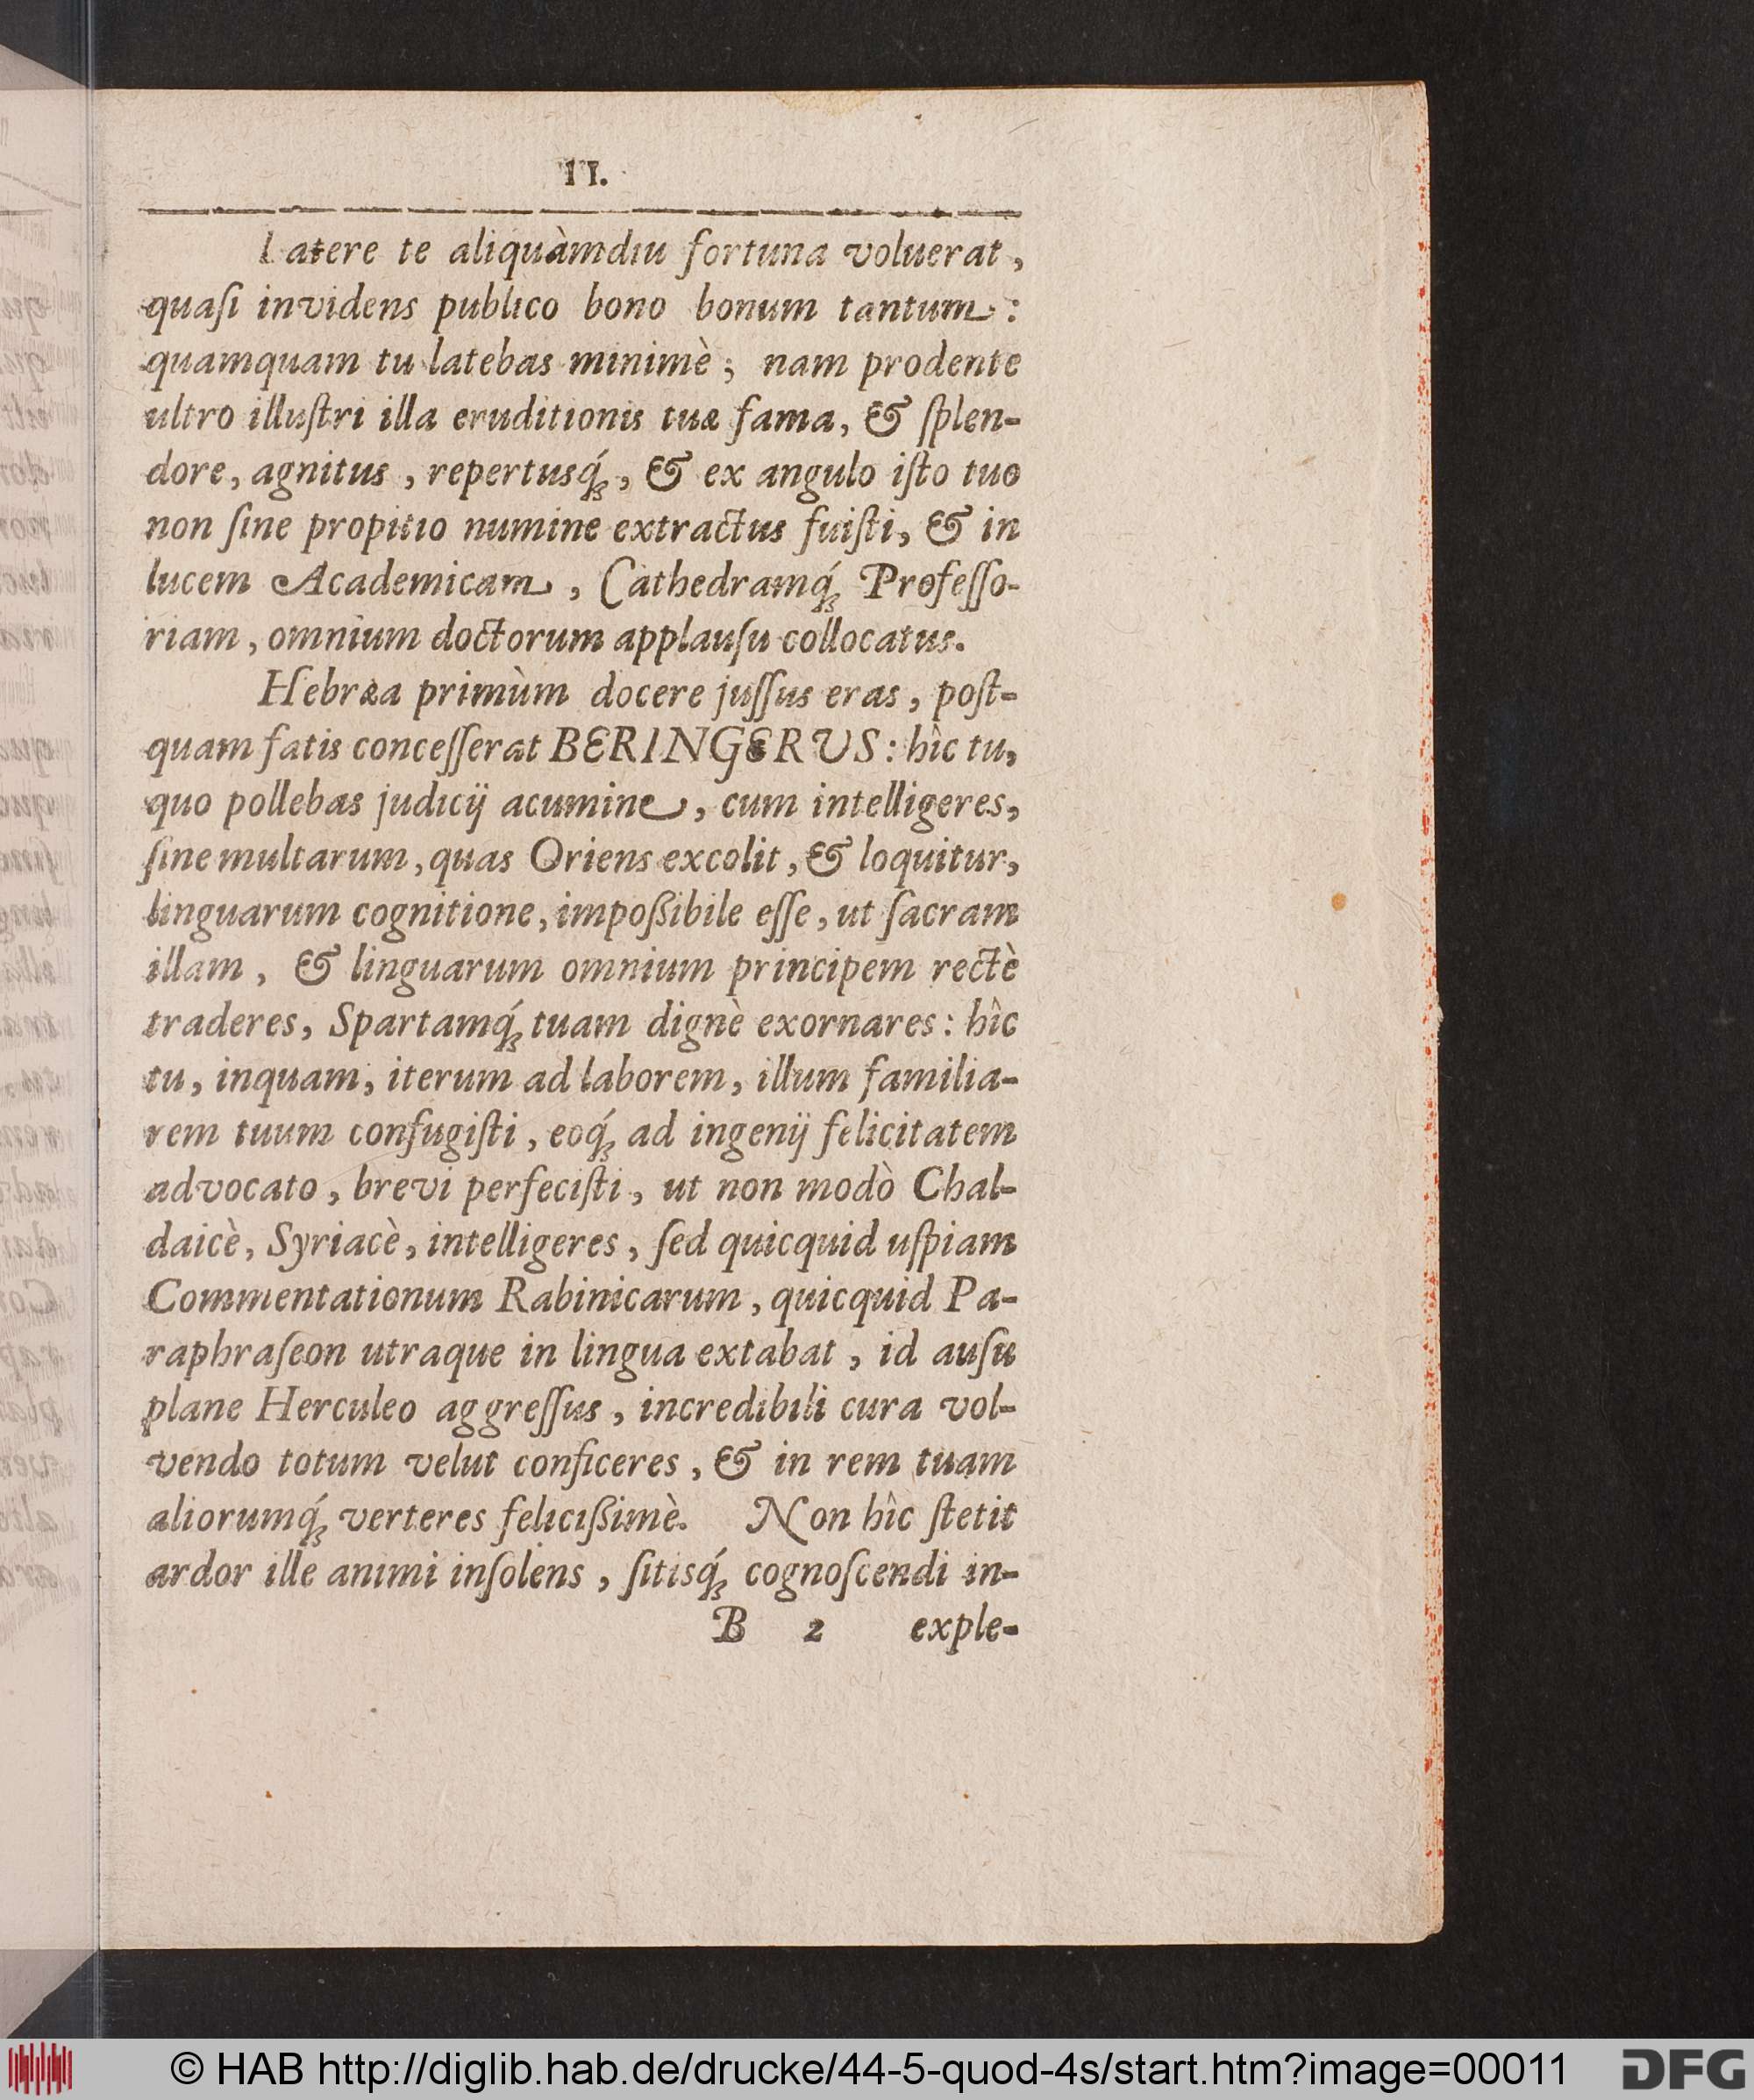 11.
Latere te aliquàmdiu fortuna voluerat,
quaſi invidens publico bono bonum tantum:
quamquam tu latebas minimè; nam prodente
ultro illuſtri illa eruditionis tuæ fama, & ſplen-
dore, agnitus, repertusq́ꝫ, & ex angulo iſto tuo
non ſine propitio numine extractus fuiſti, & in
lucem Academicam, Cathedramq́ꝫ Profeſſo-
riam, omnium doctorum applauſu collocatus.
Hebræa primùm docere juſſus eras, poſt-
quam fatis conceſſerat BERINGERUS: hîc tu,
quo pollebas judicij acumine, cum intelligeres,
ſine multarum, quas Oriens excolit, & loquitur,
linguarum cognitione, impoßibile eſſe, ut ſacram
illam, & linguarum omnium principem rectè
traderes, Spartamq́ꝫ tuam dignè exornares: hîc
tu, inquam, iterum ad laborem, illum familia-
rem tuum confugiſti, eoq́ꝫ ad ingenij felicitatem
advocato, brevi perfeciſti, ut non modò Chal-
daicè, Syriacè, intelligeres, ſed quicquid uſpiam
Commentationum Rabinicarum, quicquid Pa-
raphraſeon utraque in lingua extabat, id auſu
plane Herculeo aggreſſus, incredibili cura vol-
vendo totum velut conficeres, & in rem tuam
aliorumq́ꝫ verteres feliciſßimè. Non hîc ſtetit
ardor ille animi inſolens, ſitisq́ꝫ cognoſcendi in-
B 2 exple-
© HAB http://diglib.hab.de/drucke/44-5-quod-4s/start.htm?image=00011
DFG